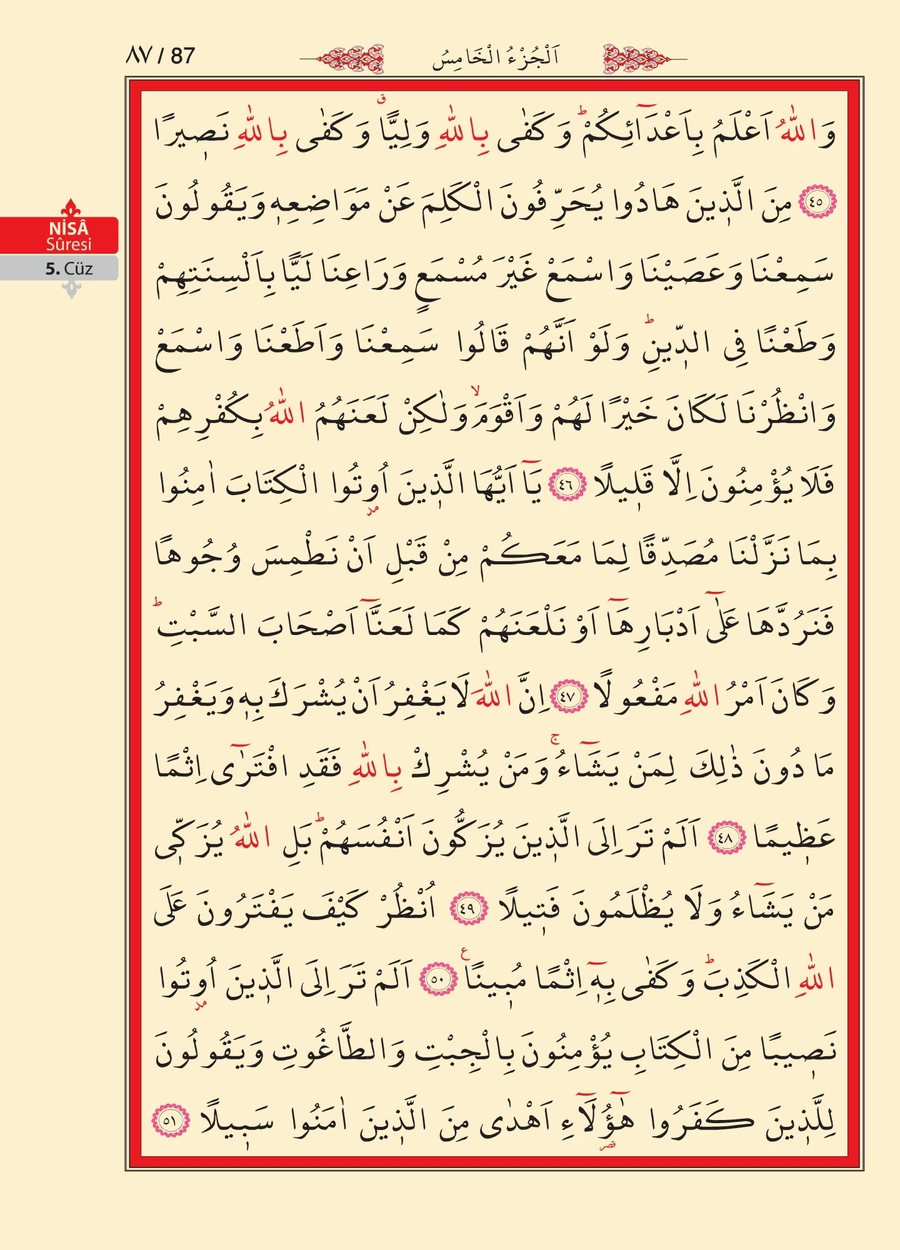 ٨٧ / 87
اَلْجُزْءُ الْخَامِسُ
NİSÂ
Sûresi
5. Cüz
وَاللّٰهُ اَعْلَمُ بِاَعْدَٓائِكُمْۜ وَكَفٰى بِاللّٰهِ وَلِيًّاۗ وَكَفٰى بِاللّٰهِ نَص۪يرًا
﴿٤٥﴾ مِنَ الَّذ۪ينَ هَادُوا يُحَرِّفُونَ الْكَلِمَ عَنْ مَوَاضِعِه۪ وَيَقُولُونَ
سَمِعْنَا وَعَصَيْنَا وَاسْمَعْ غَيْرَ مُسْمَعٍ وَرَاعِنَا لَيًّا بِاَلْسِنَتِهِمْ
وَطَعْنًا فِي الدّ۪ينِۜ وَلَوْ اَنَّهُمْ قَالُوا سَمِعْنَا وَاَطَعْنَا وَاسْمَعْ
وَانْظُرْنَا لَكَانَ خَيْرًا لَهُمْ وَاَقْوَمَۙ وَلٰكِنْ لَعَنَهُمُ اللّٰهُ بِكُفْرِهِمْ
فَلَا يُؤْمِنُونَ اِلَّا قَل۪يلًا ﴿٤٦﴾ يَٓا اَيُّهَا الَّذ۪ينَ اُو۫تُوا الْكِتَابَ اٰمِنُوا
بِمَا نَزَّلْنَا مُصَدِّقًا لِمَا مَعَكُمْ مِنْ قَبْلِ اَنْ نَطْمِسَ وُجُوهًا
فَنَرُدَّهَا عَلٰٓى اَدْبَارِهَٓا اَوْ نَلْعَنَهُمْ كَمَا لَعَنَّٓا اَصْحَابَ السَّبْتِۜ
وَكَانَ اَمْرُ اللّٰهِ مَفْعُولًا ﴿٤٧﴾ اِنَّ اللّٰهَ لَا يَغْفِرُ اَنْ يُشْرَكَ بِه۪ وَيَغْفِرُ
مَا دُونَ ذٰلِكَ لِمَنْ يَشَٓاءُۚ وَمَنْ يُشْرِكْ بِاللّٰهِ فَقَدِ افْتَرٰٓى اِثْمًا
عَظ۪يمًا ﴿٤٨﴾ اَلَمْ تَرَ اِلَى الَّذ۪ينَ يُزَكُّونَ اَنْفُسَهُمْۜ بَلِ اللّٰهُ يُزَكّ۪ي
مَنْ يَشَٓاءُ وَلَا يُظْلَمُونَ فَت۪يلًا ﴿٤٩﴾ اُنْظُرْ كَيْفَ يَفْتَرُونَ عَلَى
اللّٰهِ الْكَذِبَۜ وَكَفٰى بِه۪ٓ اِثْمًا مُب۪ينًا۟ ﴿٥٠﴾ اَلَمْ تَرَ اِلَى الَّذ۪ينَ اُو۫تُوا
نَص۪يبًا مِنَ الْكِتَابِ يُؤْمِنُونَ بِالْجِبْتِ وَالطَّاغُوتِ وَيَقُولُونَ
لِلَّذ۪ينَ كَفَرُوا هٰٓؤُ۬لَٓاءِ اَهْدٰى مِنَ الَّذ۪ينَ اٰمَنُوا سَب۪يلًا ﴿٥١﴾